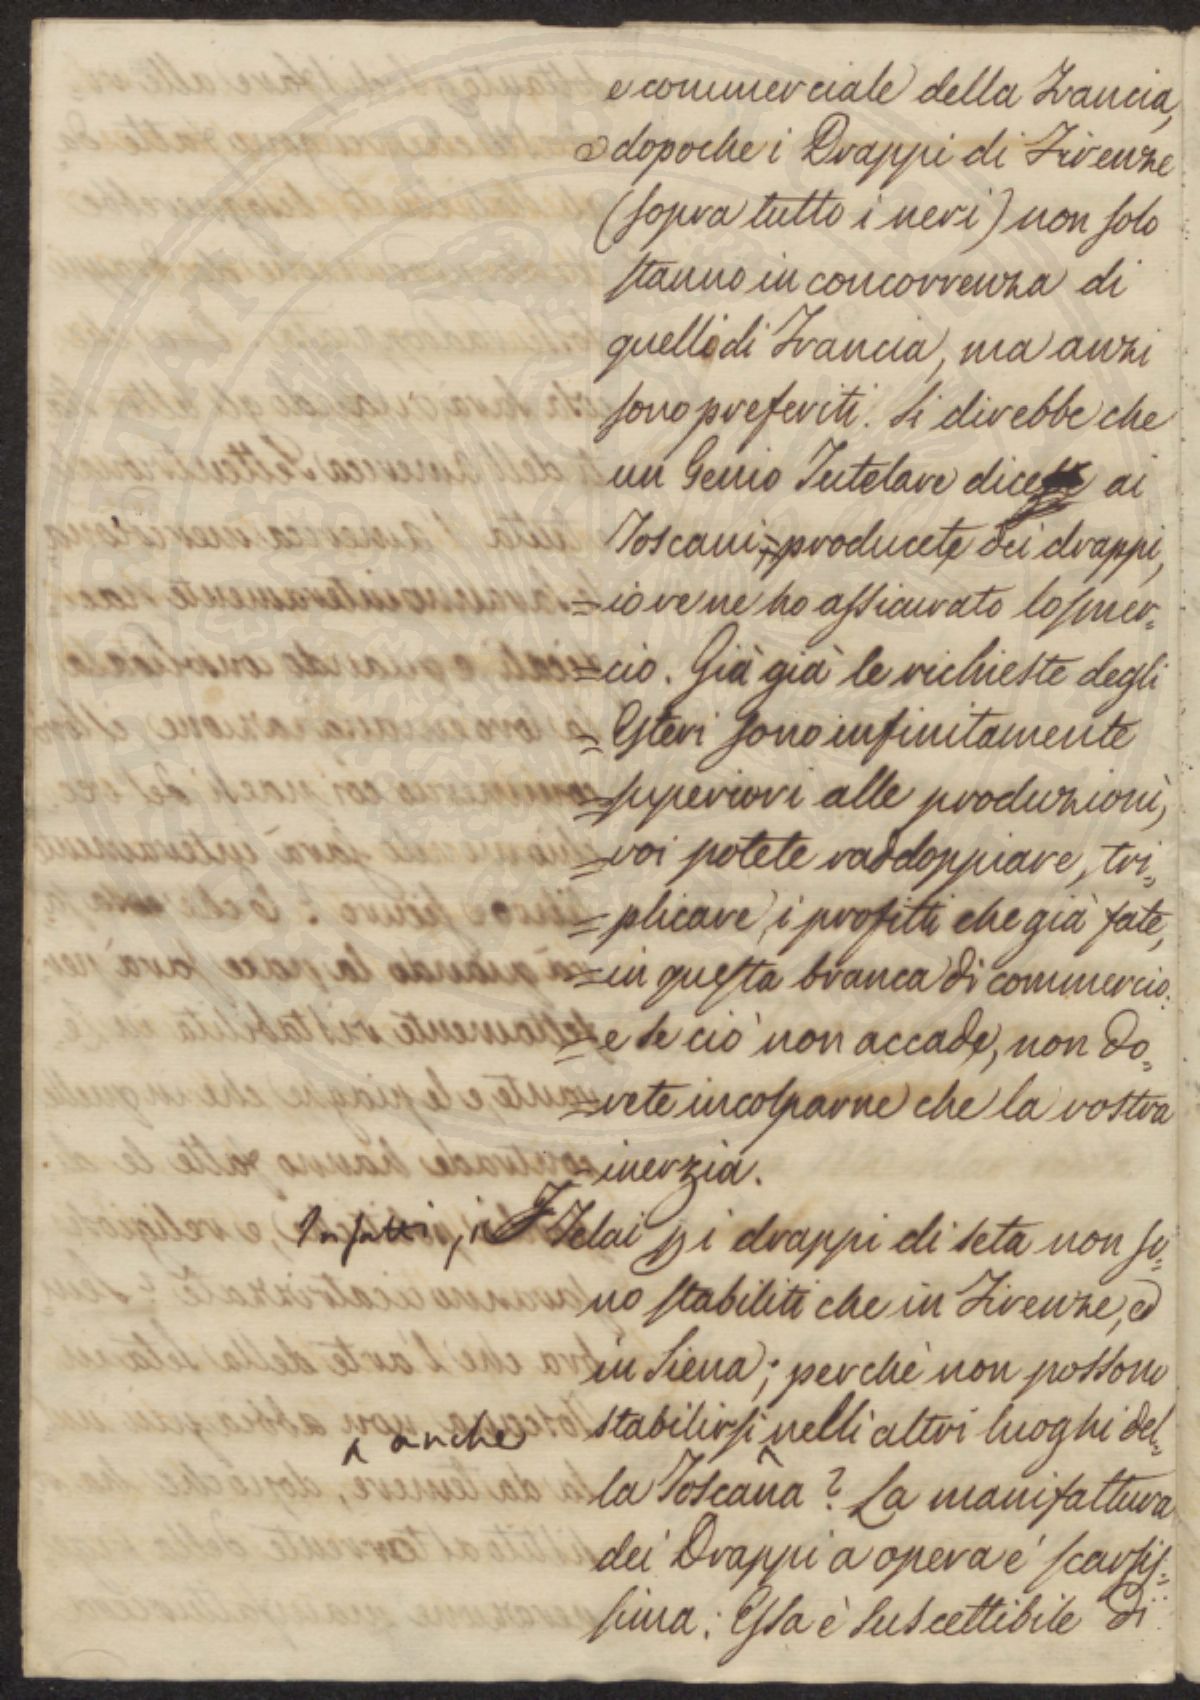 e commerciale della Francia,
dopoche i Drappi di Firenze
(sopra tutto i neri) non solo
stanno in concorrenza di
quelli di Francia, ma anzi
sono preferiti. Si direbbe che
un Genio Tutelare dice ai
Toscani, = producete dei drappi,
= io ve ne ho assicurato lo smer=
= cio. Già già le richieste degli
= Esteri sono infinitamente
= superiori alle produzioni,
= voi potete raddoppiare, tri=
= plicare, i profitti che già fate,
= in questa branca di commercio:
= e se ciò non accade, non do=
= vete incolparne che la vostra
= inerzia.
Infatti, i Telai pi drappi di seta non so=
no stabiliti che in Firenze, ed
in Siena; perchè non possono
stabilirsi ^ nelli altri luoghi del=
^ anche
la Toscana? La manifattura
dei Drappi a opera è scarsis=
sima: Essa è suscettibile di